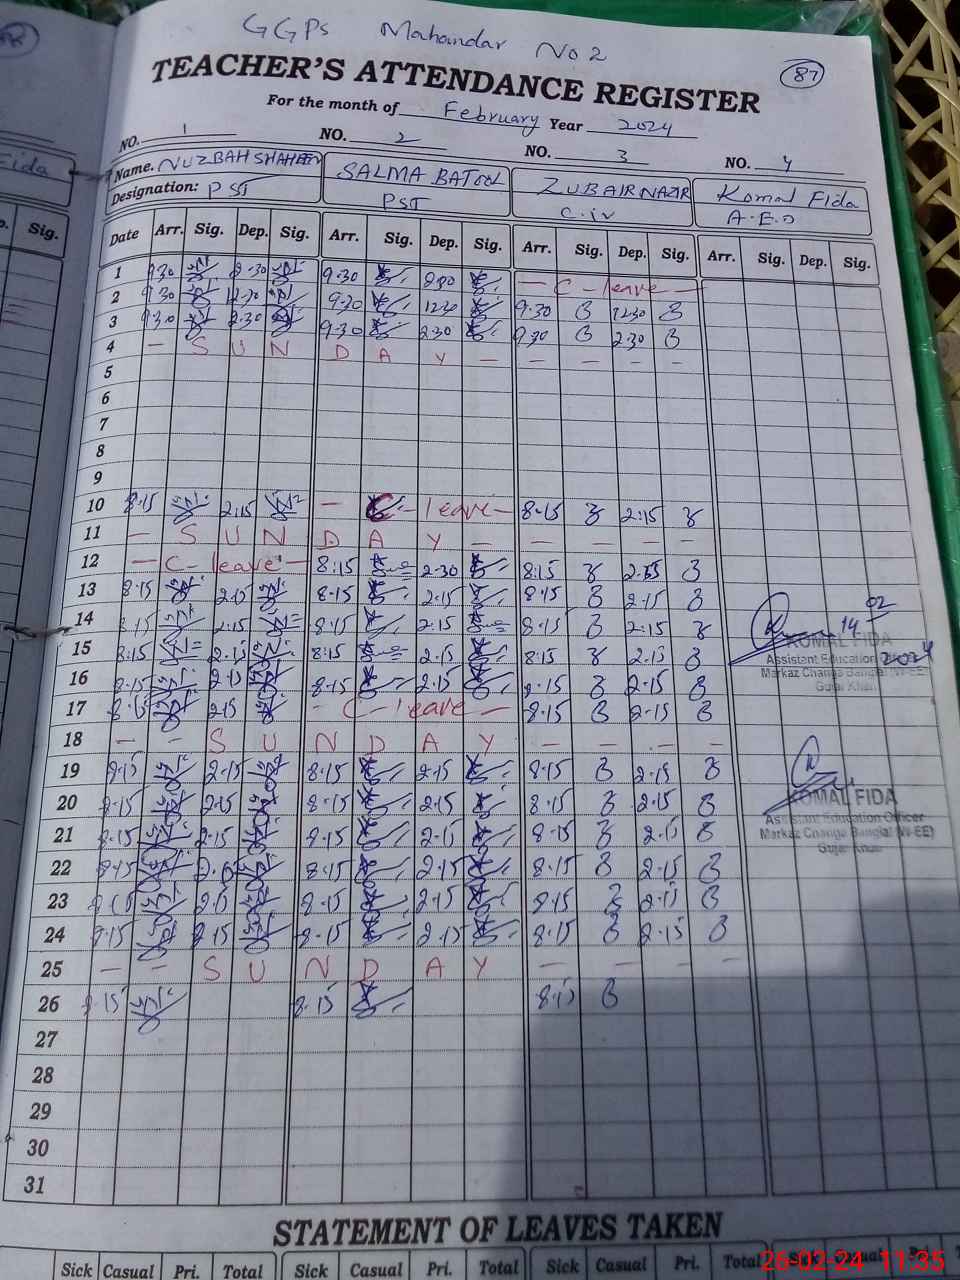 GGPS Mahandar No 2
87
TEACHER'S ATTENDANCE REGISTER
For the month of February Year 2024
NO. 1 NO. 2 NO. 3 NO. 4
Fida
Name. NUZBAH SHAHEEN SALMA BATOOL ZUBAIR NAZIR Komal Fida
Designation: PST PST C.iv A.E.O
Sig.
Date Arr. Sig. Dep. Sig. Arr. Sig. Dep. Sig. Arr. Sig. Dep. Sig. Arr. Sig. Dep. Sig.
1 9.30 2.30 9.30 - C - leave -
2 9.30 12.30 9.30 12.30 9.30 12.30
3 9.30 2.30 9.30 2.30 9.30 2.30
4 - S U N D A Y - - - - -
5
6
7
8
9
10 8.15 2.15 - C - leave - 8.15 2:15
11 - S U N D A Y - - - - -
12 - C - leave - 8:15 2.30 8:15 2.15
13 8.15 2.15 8.15 2.15 8.15 2.15
14 8.15 2.15 8.15 2.15 8.15 2:15
15 8:15 2.15 8:15 2.15 8:15 2.15
16 8.15 2.15 8.15 2.15 8.15 2.15
17 8.15 2.15 - C - leave - 8.15 2.15
18 - - S U N D A Y - - - -
19 8.15 2.15 8.15 2.15 8.15 2.15
20 8.15 2.15 8.15 2.15 8.15 2.15
21 8.15 2.15 8.15 2.15 8.15 2.15
22 8.15 2.15 8.15 2.15 8.15 2.15
23 8.15 2.15 8.15 2.15 8.15 2.15
24 8.15 2.15 8.15 2.15 8.15 2.15
25 - - S U N D A Y - - - -
26 8.15 8.15 8.15
27
28
29
30
31
14 02 2024
KOMAL FIDA
Assistant Education
Markaz Changa Bangial (W-EE)
Gujar Khan
KOMAL FIDA
Assistant Education Officer
Markaz Changa Bangial (W-EE)
Gujar Khan
STATEMENT OF LEAVES TAKEN
Sick Casual Pri. Total Sick Casual Pri. Total Sick Casual Pri. Total Sick Casual Pri.
26-02-24 11:35